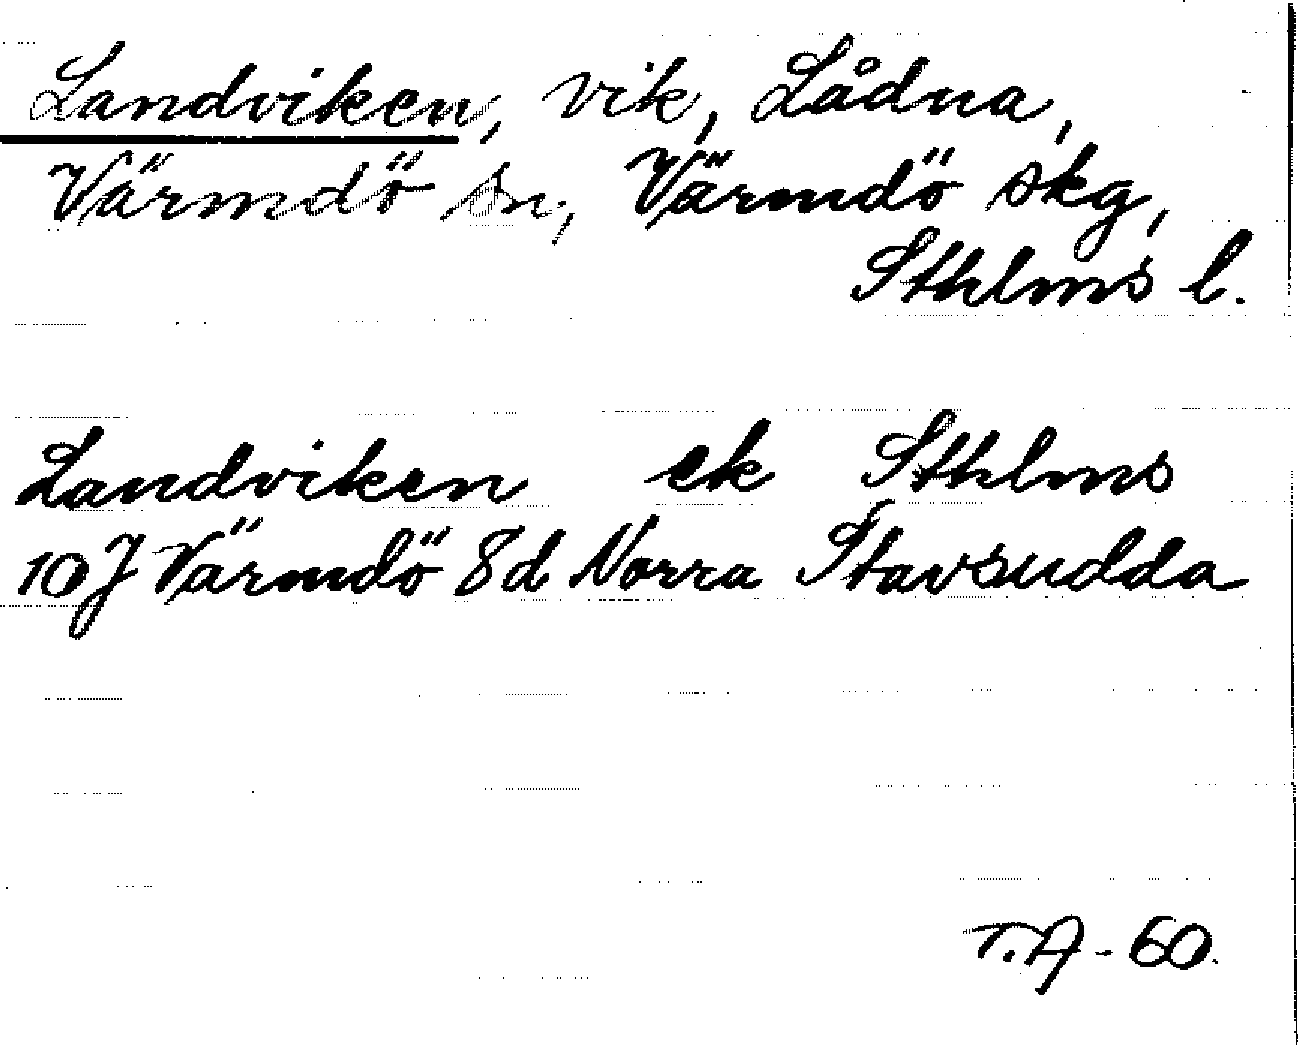 Landviken, vik, Lådna,
Värmdö sn, Värmdö skg,
Sthlms l.
Landviken ek Sthlms
10J Värmdö 8d Norra Stavsudda
T.A-60.